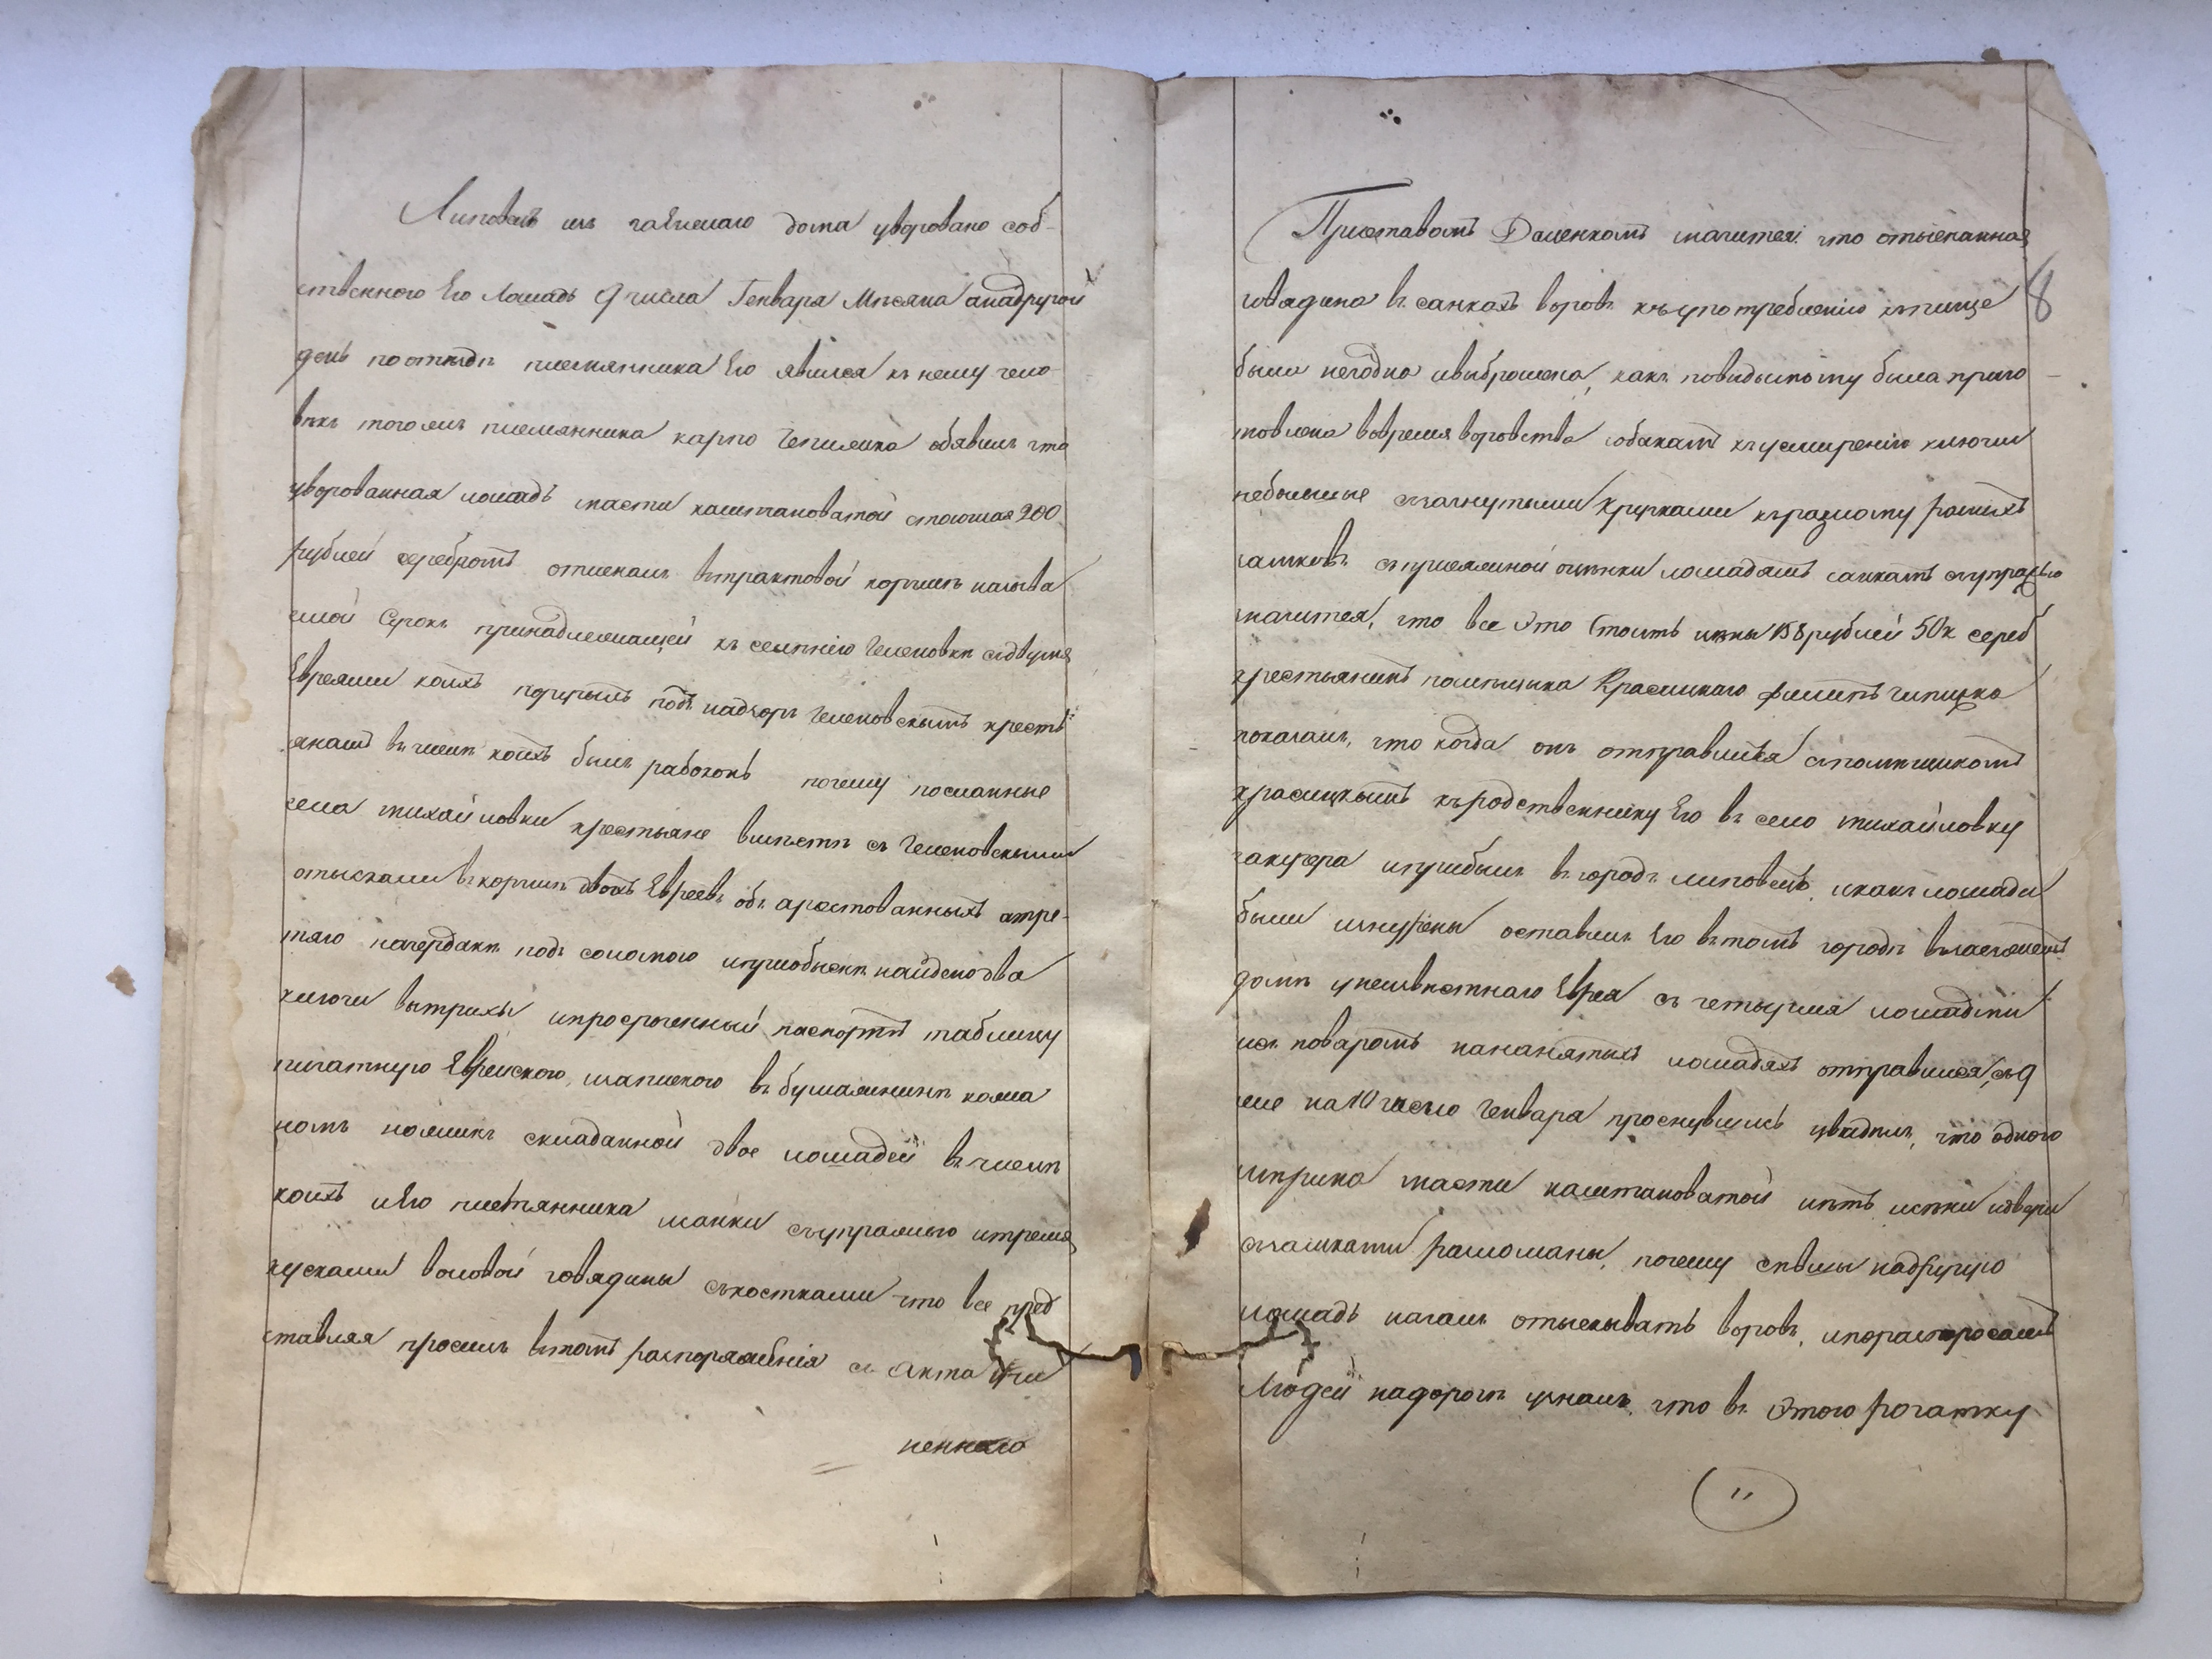 Липовецъ изъ заѣзжаго дома уворовано соб-
ственного Его лошадь 9 числа Генваря Мѣсяца анадругой
день поотъѣздѣ племянника Его явился къ нему чело
вѣкъ тогожъ племянника карпо объявилъ что
уворованная лошадь масти каштановатой стоющая 200
рублей серебромъ отыскалъ втрактовой корчмѣ называ
емой Срокъ принадлежащей къ селѣнію Чеменовки сдвумя
Евреями коихъ поручилъ подъ надзоръ Чеменовскимъ кресть
янамъ въ числѣ коихъ былъ почему посланные
села михайловки крестьяне вмѣстѣ съ Чеменовскими
отыскали в корчмѣ двохъ Евреевъ объ арестованныхъ атре-
тяго начердакѣ подъ соломою иприобыскѣ найдено два
ключи вытрихи ипросроченный паспортъ таблицу
печатную Еврейского, въ бумажникѣ кожа
номъ ножикъ складанной двое лошадей въ числѣ
коихъ иЕго племянника санки съупряжью итремя
кусками воловой говядины скостками что все пред
ставляя просилъ втомъ распоряженія съ Акта учи
неннаго
Приставомъ Даценкомъ значится: что отысканная
говядина въ санкахъ воровъ къупотребленію въпищу
8
были негодна ивыброшена, какъ повидимому была приго-
товлена вовремя воровства собакамъ къусмиренію ключи
небольшие съзагнутыми крючками къразному
замковъ съприсяжной оцѣнки лошадямъ санкамъ съупряжью
значится, что все Это Стоитъ цѣны 158 рублей 50 к сереб
крестьянинъ помѣщика Красицкаго филипъ
показалъ, что когда онъ отправился съпомѣщикомъ
красицкимъ къродственнику Его въ село михайловку
закучера иприбылъ въ городъ липовецъ, икакъ лошади
были изнурены оставилъ Его втомъ городѣ възаезжемъ
домѣ унеизвѣстнаго Еврея съ четырмя лошадьми
исъ поваромъ нананятыхъ лошадяхъ отправился, съ 9
же на 10 число Генваря проснувшись увидѣлъ, что одного
мѣрина масти каштановатой нѣтъ изънки идвери
съзамками разломаны, почему сѣвши надругую
лошадь началъ отыскивать воровъ, ипораспросамъ
Людей надорогѣ узналъ, что въ Этого рогатку